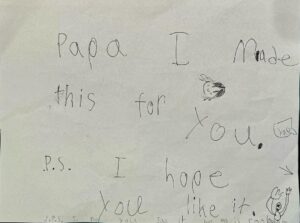 Papa I Made
this for
You.
P.S. I hope
You like it.